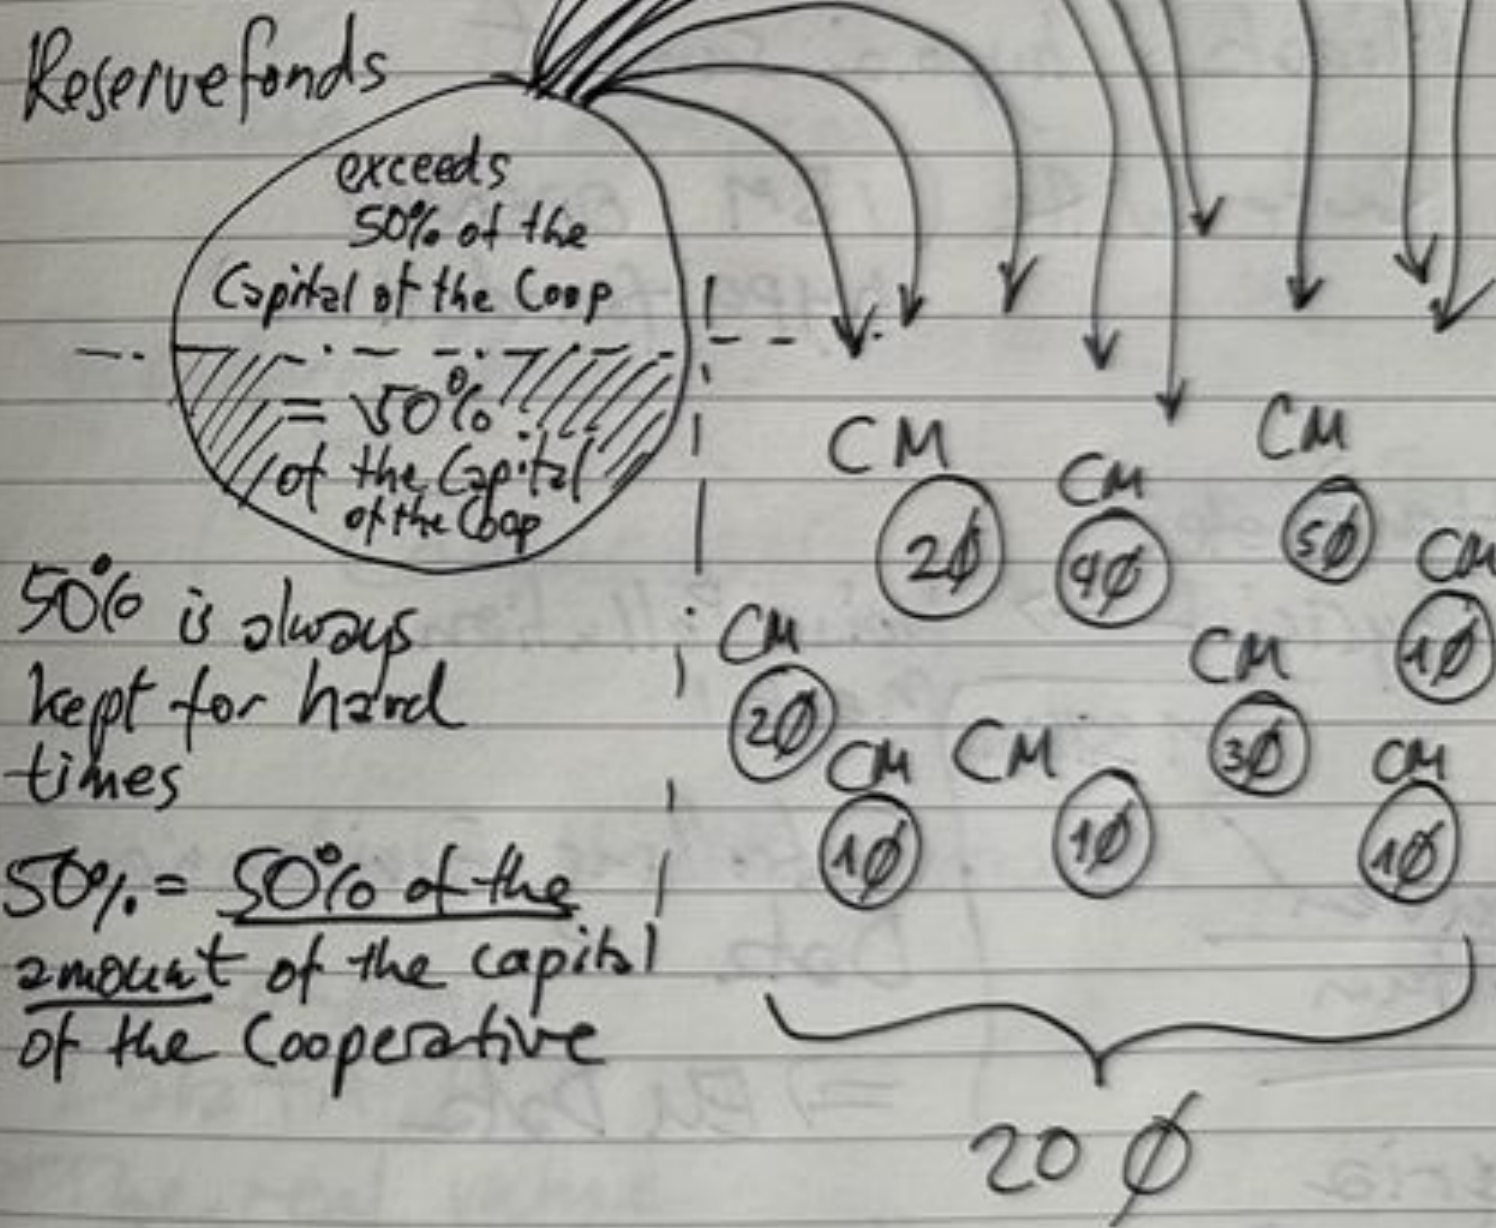 Reservefonds
exceeds
50% of the
Capital of the Coop
= 50%
of the Capital
of the Coop
50% is always
kept for hard
times
50% = 50% of the
amount of the capital
of the Cooperative
CM
2Ø
CM
4Ø
CM
5Ø
CM
1Ø
CM
2Ø
CM
3Ø
CM
1Ø
CM
1Ø
CM
1Ø
20 Ø